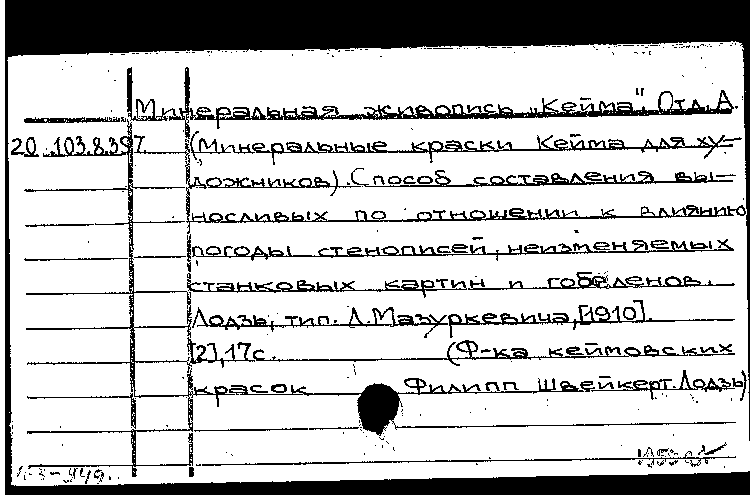 Минеральная живопись „Кейма". Отд. А.
20.103.8.397. (Минеральные краски Кейма для ху-
дожников). Способ составления вы-
носливых по отношении к влиянию
погоды стенописей, неизменяемых
станковых картин и гобеленов.
Лодзь, тип. Л. Мазуркевича, [1910].
[2], 17с. (Ф-ка кеймовских
красок Филипп Швейкерт. Лодзь)